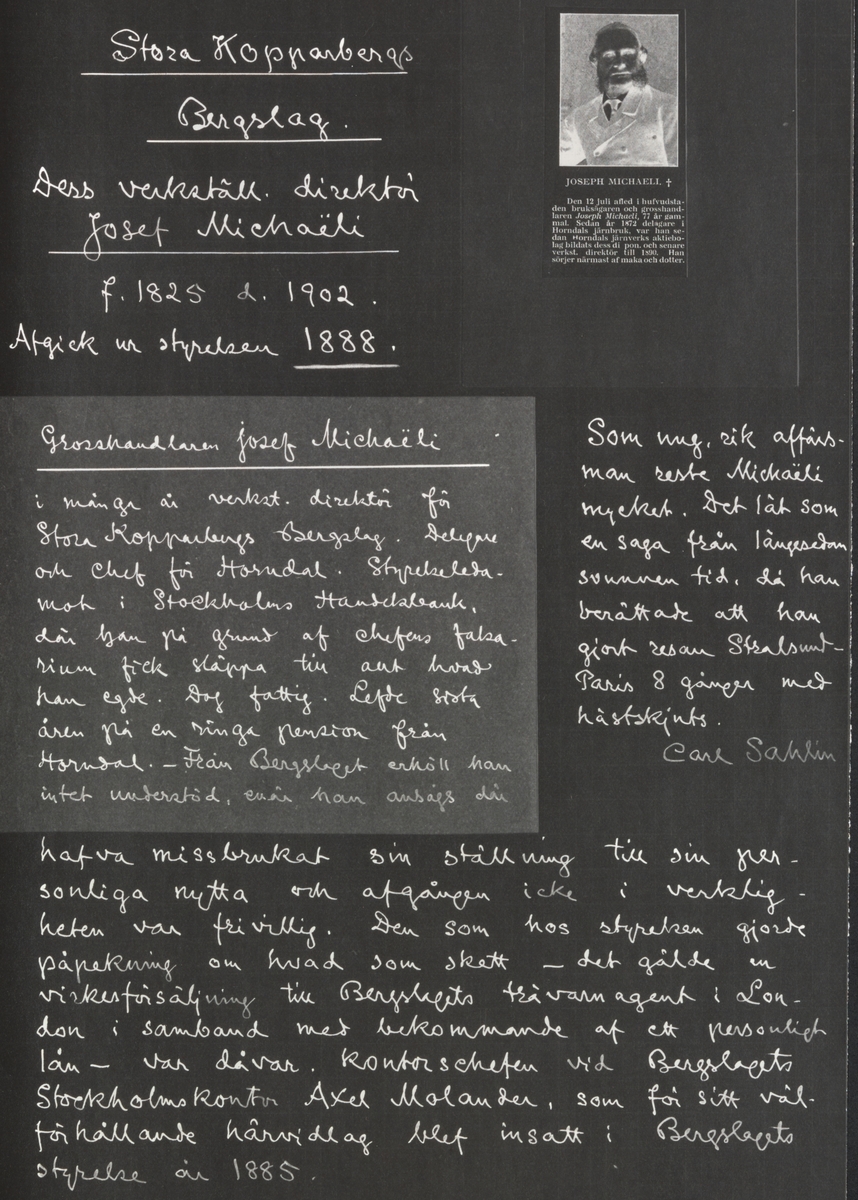 Stora Kopparbergs
Bergslag.
Dess verkställ. direktör
Josef Michaëli
f. 1825 d. 1902.
Afgick ur styrelsen 1888.
JOSEPH MICHAELI †
Den 12 juli afled i hufvudsta-
den bruksägaren och grosshand-
laren Joseph Michaeli, 77 år gam-
mal. Sedan år 1872 delägare i
Horndals järnbruk, var han se-
dan Horndals järnverks aktiebo-
lag bildats dess di pon. och senare
verkst. direktör till 1890. Han
sörjer närmast af maka och dotter.
Grosshandlaren Josef Michaëli
i många år verkst. direktör för
Stora Kopparbergs Bergslag. Delegare
och chef för Horndal. Styrelseleda-
mot i Stockholms Handelsbank,
där han på grund af chefens falsa-
rium fick släppa till allt hvad
han egde. Dog fattig. Lefde sista
åren på en ringa pension från
Horndal. – Från Bergslaget erhöll han
intet understöd, enär han ansågs där
hafva missbrukat sin ställning till sin per-
sonliga nytta och afgången icke i verklig-
heten var frivillig. Den som hos styrelsen gjorde
påpekning om hvad som skett – det gälde en
virkesförsäljning till Bergslagets trävaruagent i Lon-
don i samband med bekommande af ett personligt
lån – var dåvar. kontorschefen vid Bergslagets
Stockholmskontor Axel Molander, som för sitt väl-
förhållande härvidlag blef insatt i Bergslagets
styrelse år 1885.
Som ung, rik affärs-
man reste Michaëli
mycket. Det lät som
en saga från längesedan
svunnen tid, då han
berättade att han
gjort resan Stralsund-
Paris 8 gånger med
hästskjuts.
Carl Sahlin